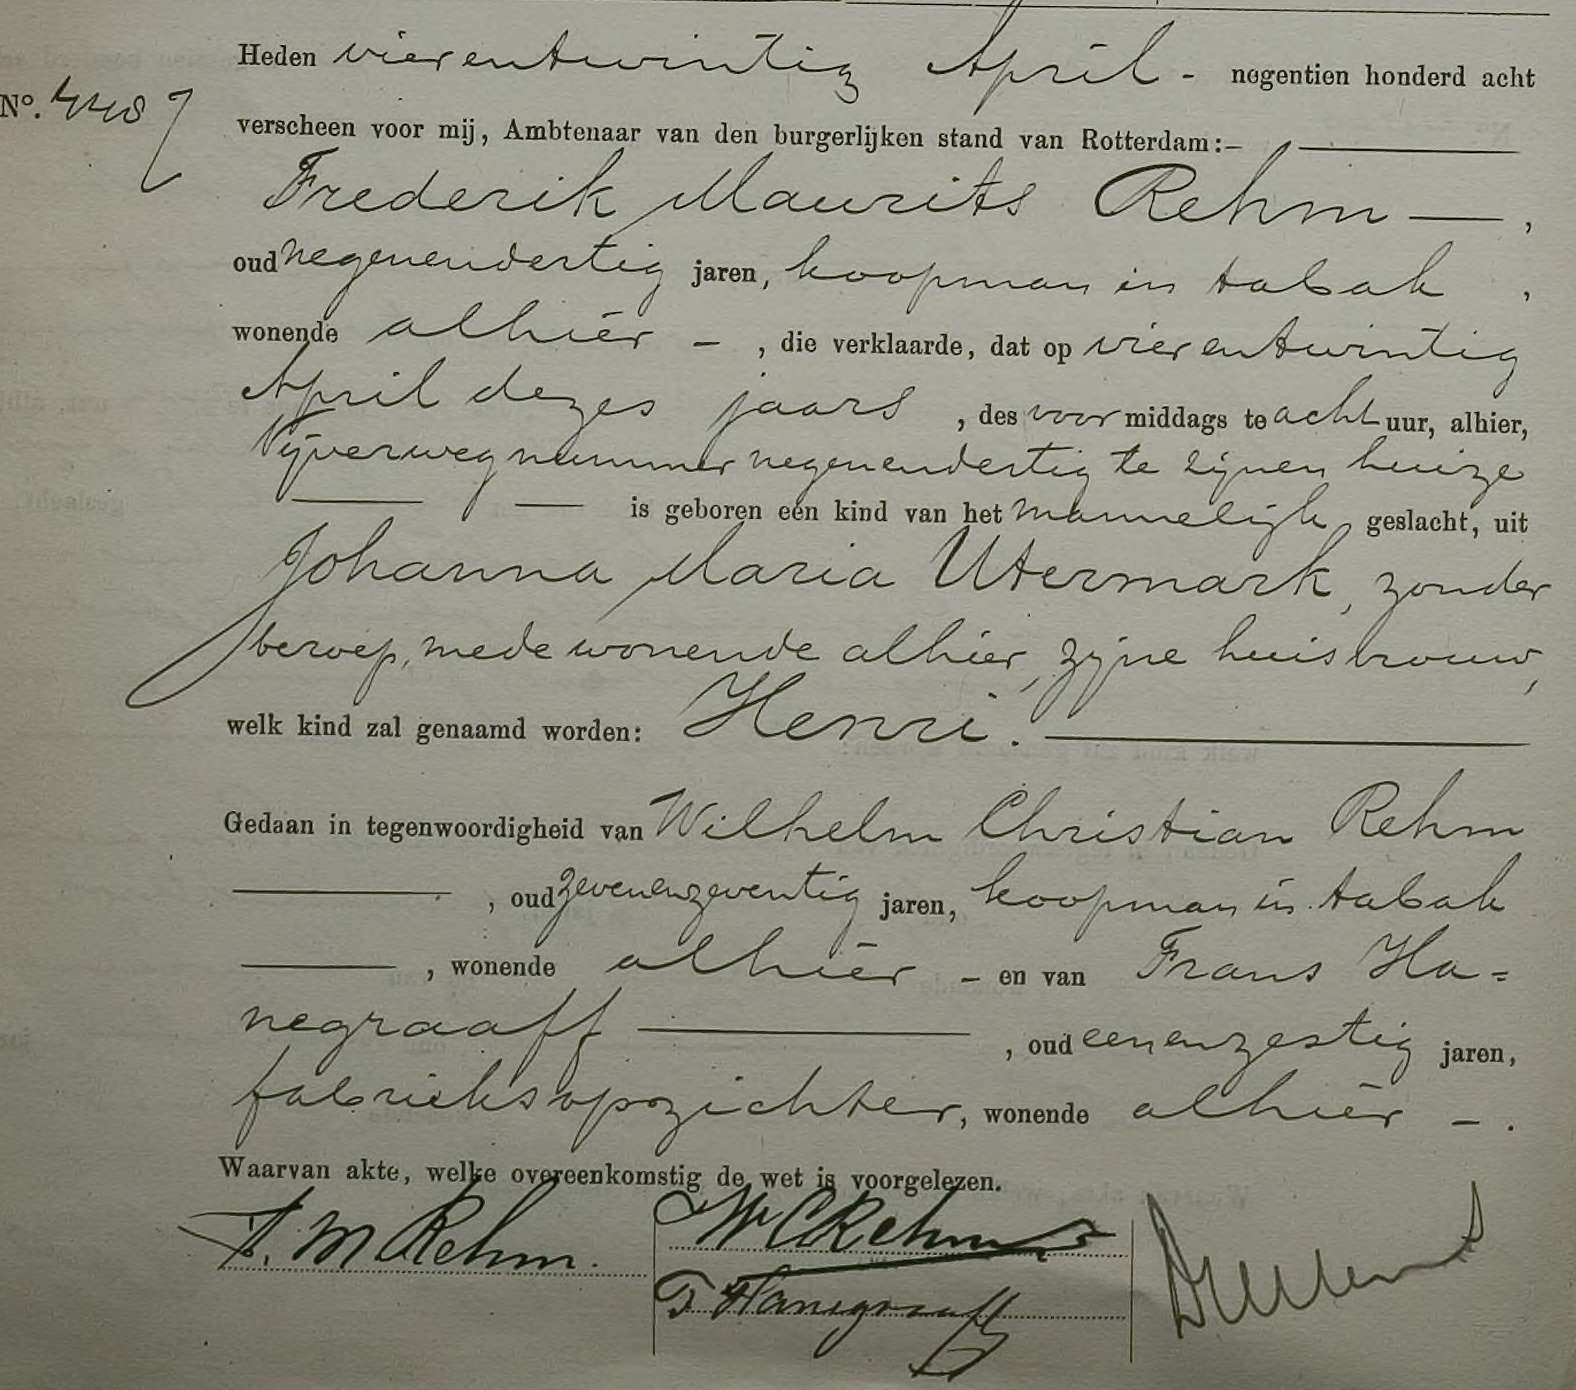 Heden vierentwintig April - negentien honderd acht
No. 4487
verscheen voor mij, Ambtenaar van den burgerlijken stand van Rotterdam:—
Frederik Maurits Rehm — ,
oud negenendertig jaren, koopman in tabak ,
wonende alhier - , die verklaarde, dat op vierentwintig
April dezes jaars , des voor middags te acht uur, alhier,
Vijverweg nummer negenendertig te zijnen huize
is geboren een kind van het mannelijk geslacht, uit
Johanna Maria Utermark, zonder
beroep, mede wonende alhier, zijne huisvrouw,
welk kind zal genaamd worden: Henri.
Gedaan in tegenwoordigheid van Wilhelm Christian Rehm
, oud zevenenzeventig jaren, koopman in tabak
, wonende alhier - en van Frans Ha=
negraaff , oud eenenzestig jaren,
fabrieksopzichter, wonende alhier - .
Waarvan akte, welke overeenkomstig de wet is voorgelezen.
F. M Rehm. W C Rehm
F Hanegraaff